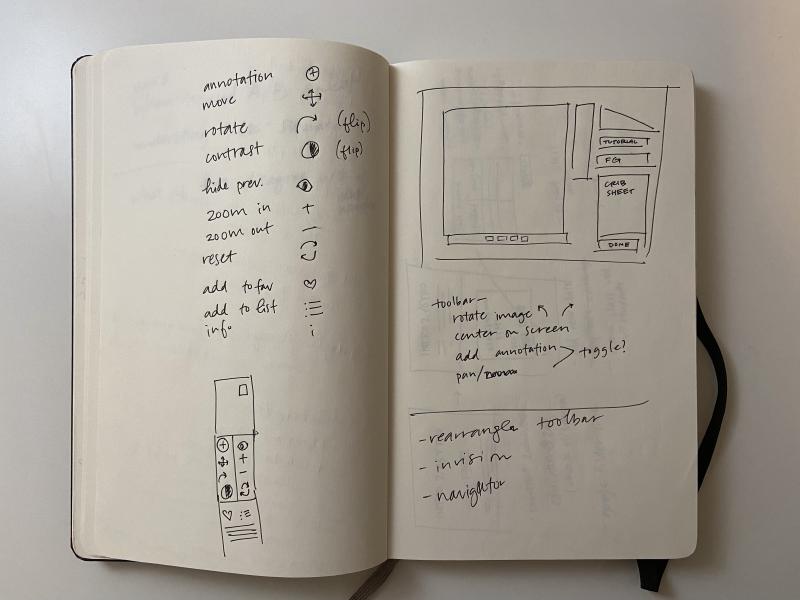 annotation
move
rotate (flip)
contrast (flip)
hide prev.
zoom in +
zoom out –
reset
add to fav
add to list
info i
TUTORIAL
FG
CRIB
SHEET
DONE
toolbar–
rotate image
center on screen
add annotation
toggle?
pan/
- rearrange toolbar
- invision
- navigator